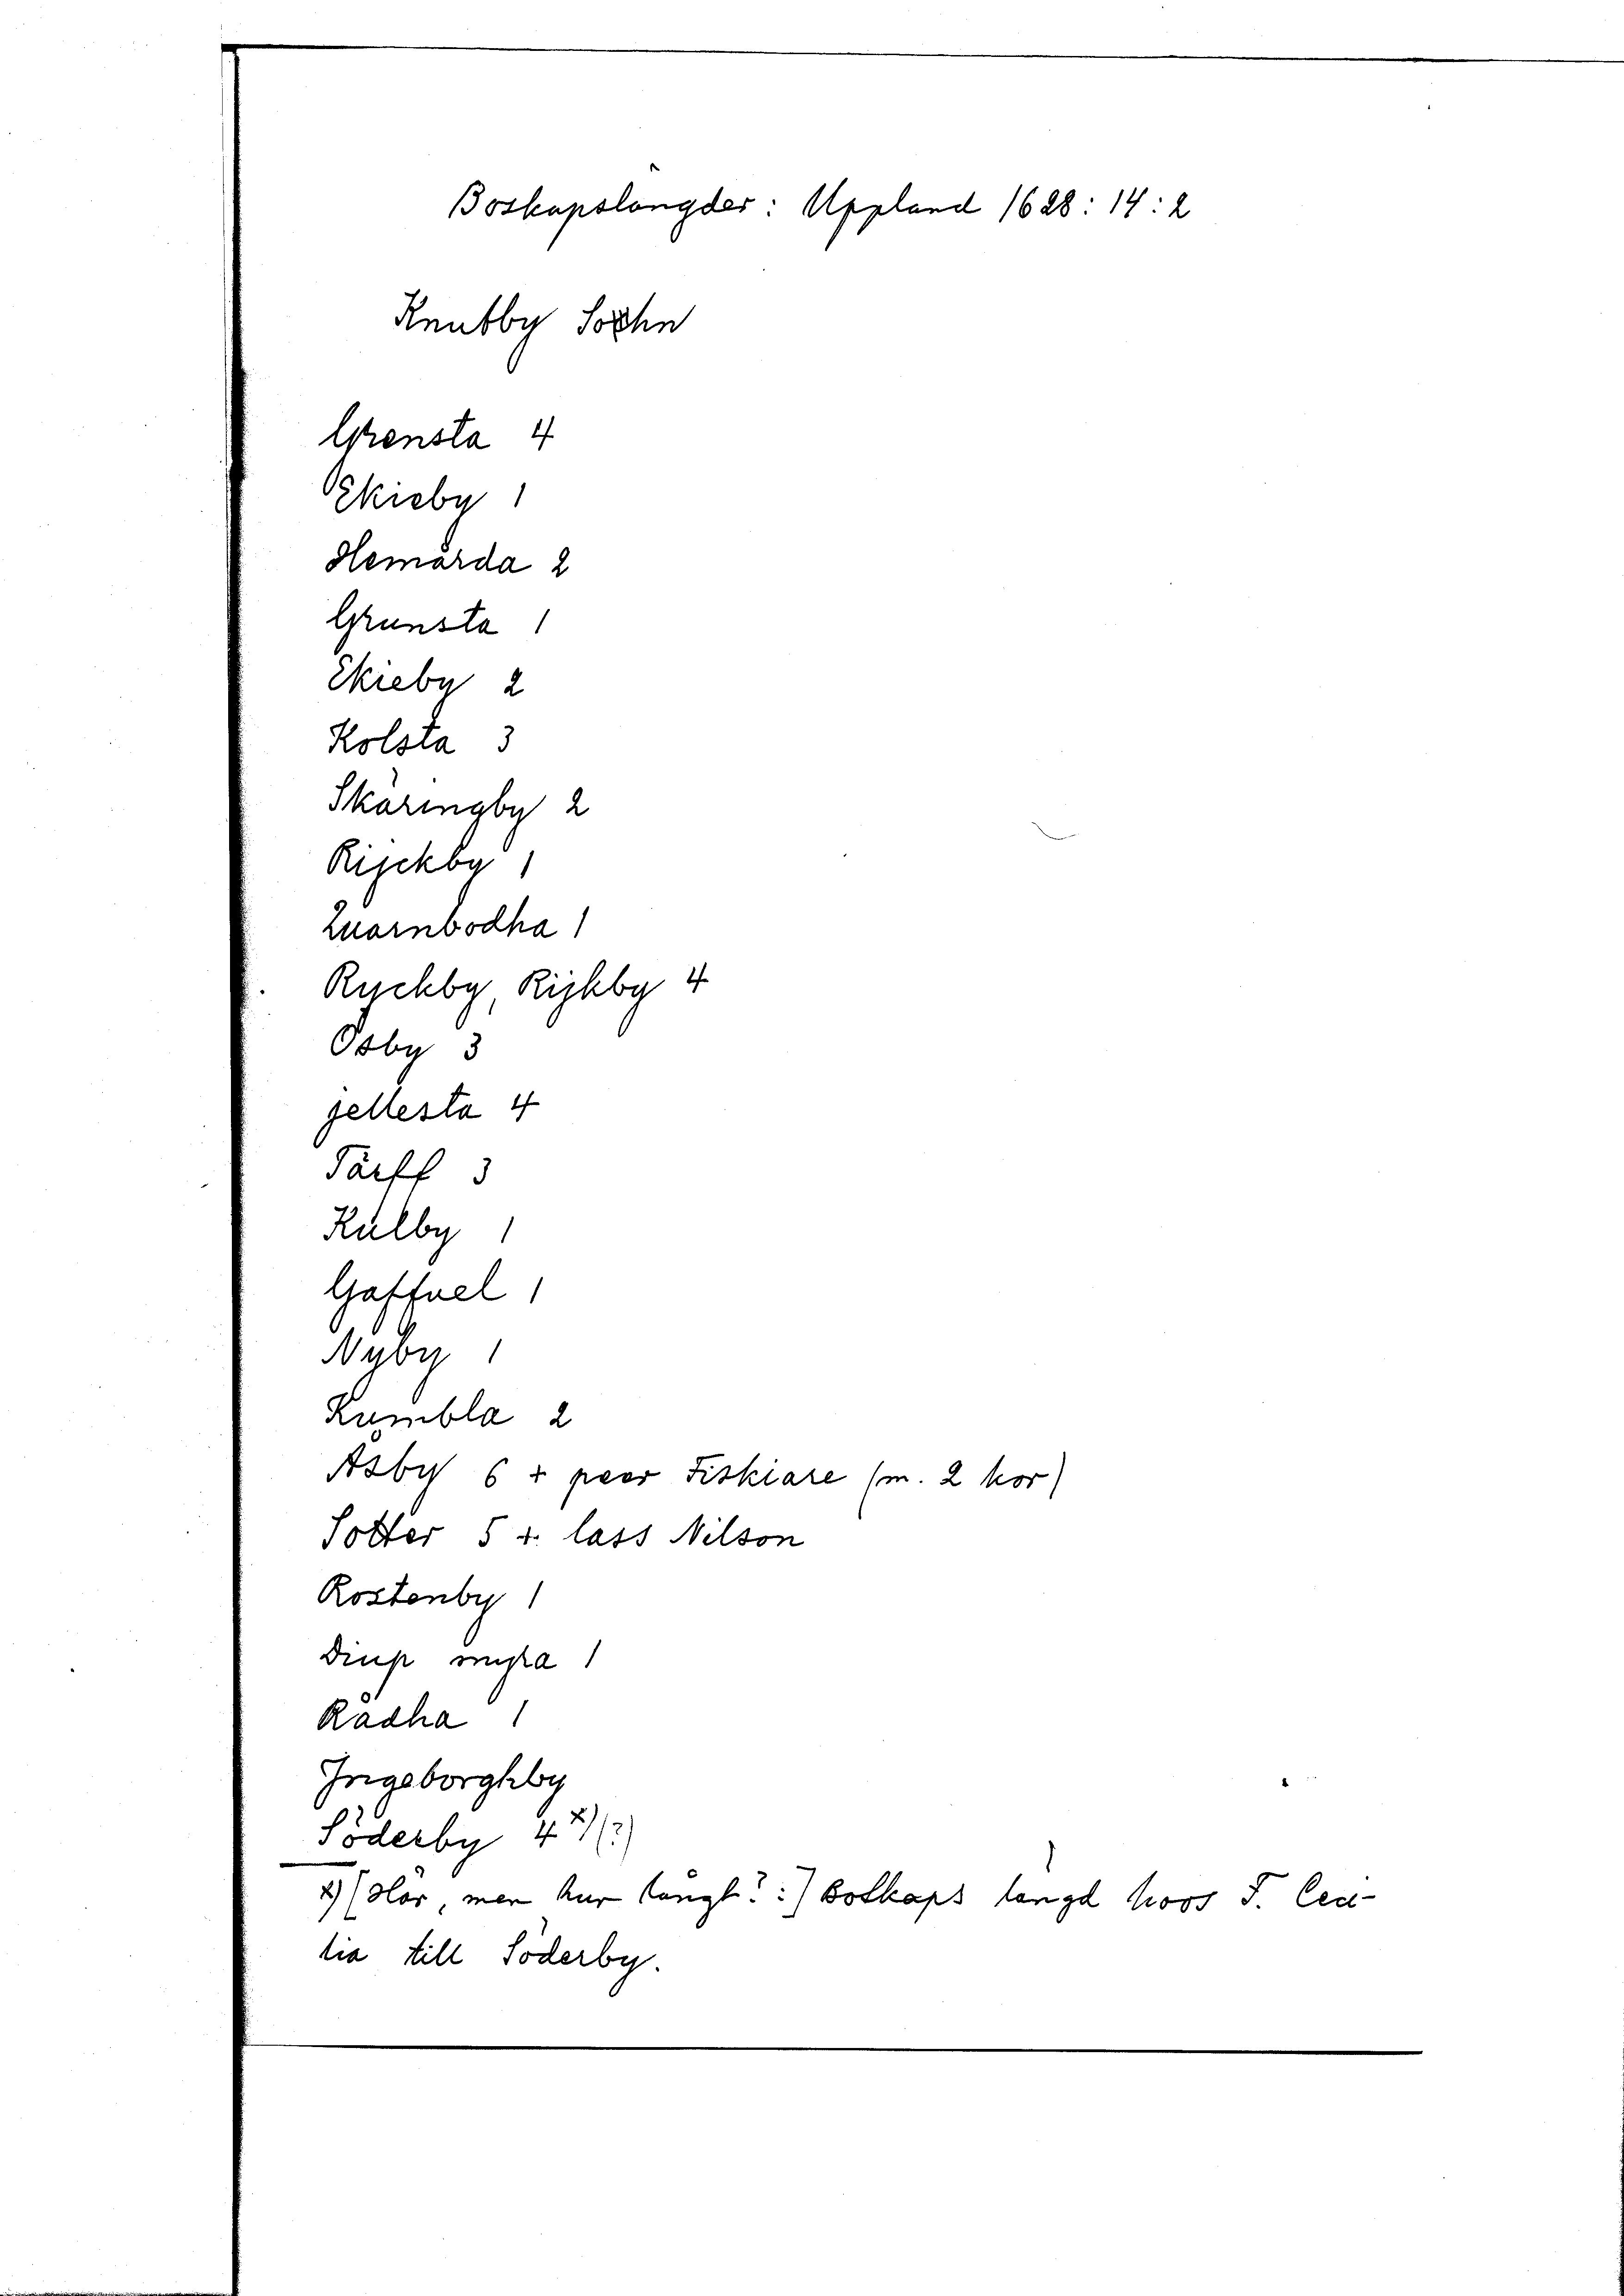 Boskapslängder: Uppland 1628: 14: 2
Knutby Sochn
Grensta 4
Ekieby 1
Hemårda 2
Grunsta 1
Ekieby 2
Kolsta 3
Skäringby 2
Rijckby 1
Quarnbodha 1
Ryckby, Rijkby 4
Ösby 3
jellesta 4
Tärff 3
Kulby 1
Gaffuel 1
Nyby 1
Kumbla 2
Åsby 6 + peer Fiskiare (m. 2 kor)
Sotter 5 + lass Nilson
Rostenby 1
Diup myra 1
Rådha 1
Ingeborghby
Söderby 4 x) (?)
x) (Här, men hur långt? :) Boskaps längd hoos F. Ceci-
lia till Söderby.